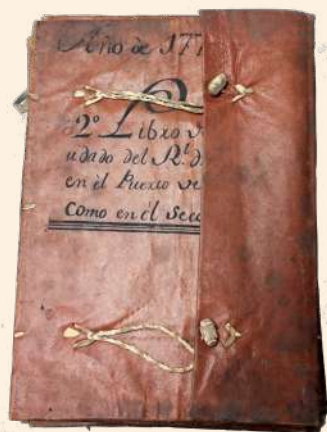 Año de 177
2º Libro v
udado del Rl d
en él Puerto de
como en él Secc